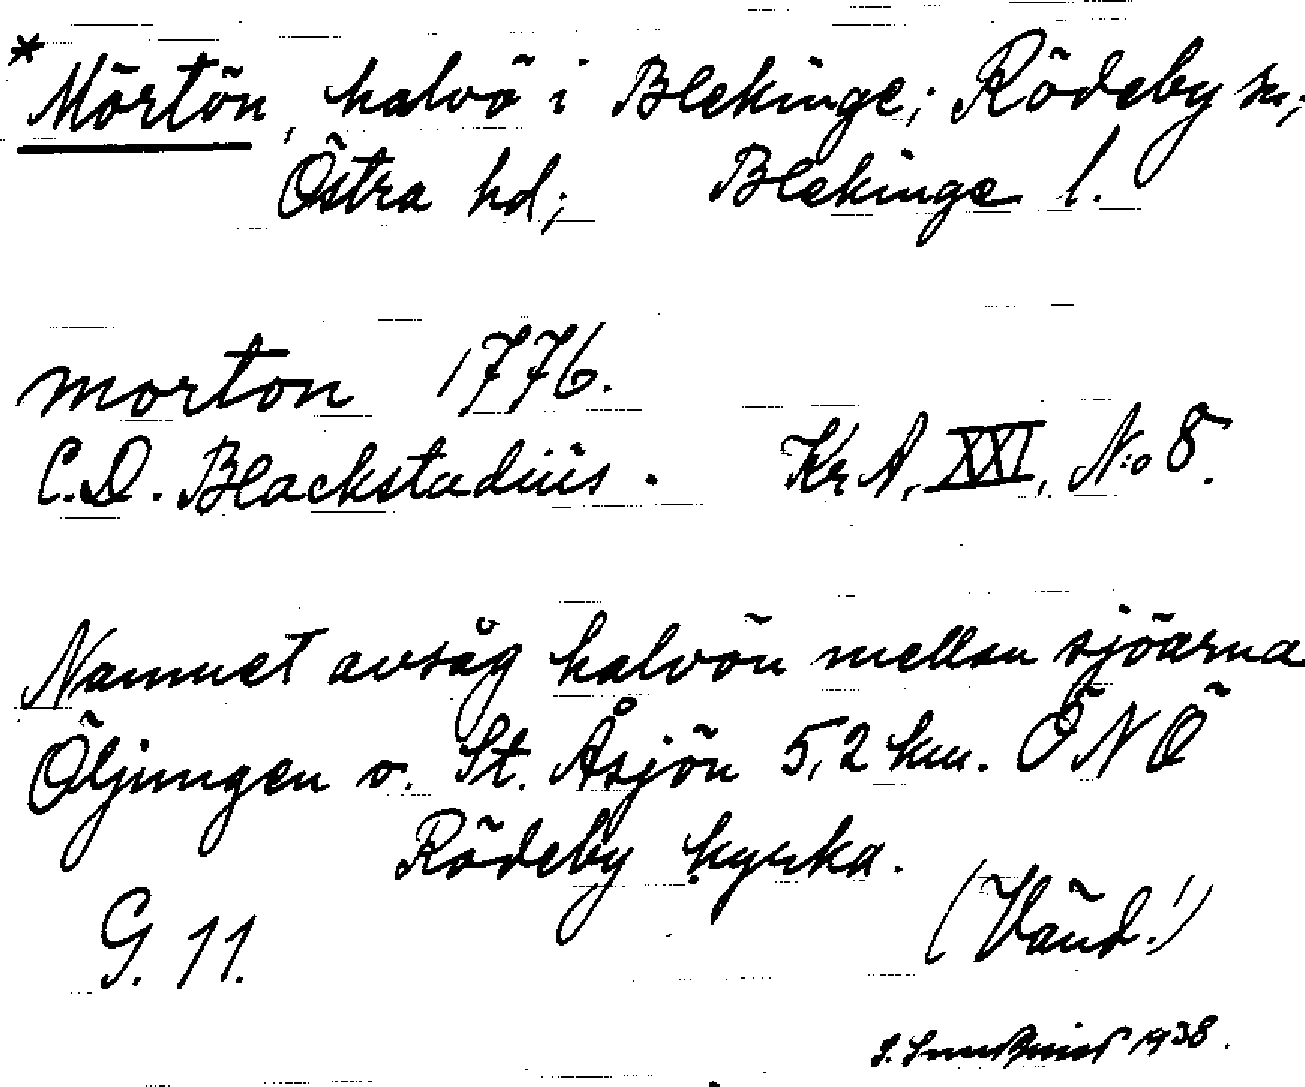 *Mörtön, halvö i Blekinge; Rödeby sn;
Östra hd; Blekinge l.
morton 1776.
C.D. Blackstadius. Kr A, XXI, N:o 8.
Namnet avsåg halvön mellan sjöarna
Öljungen o. St. Åsjön 5,2 km. ÖNÖ
Rödeby kyrka.
G. 11. (Vänd!)
1938.